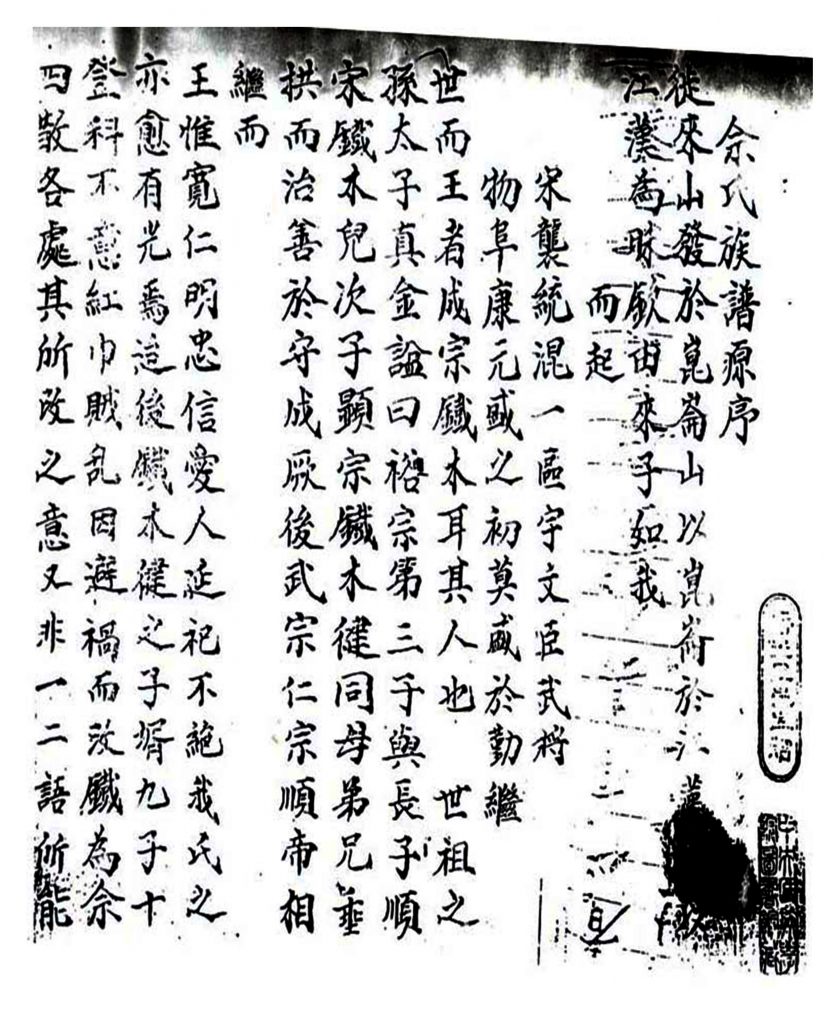 余氏族譜源序
從來山發於崑崙山以崑崙於江
江漢為脉歔由來子如我
而起
宋襲統混一區宇文臣武將
物阜康元盛之初莫盛於勤繼
世而王者成宗鐵木耳其人也 世祖之
孫太子真金諡曰裕宗第三子與長子順
宋鐵木兒次子顯宗鐵木徤同母弟兄垂
拱而治善於守成厥後武宗仁宗順帝相
繼而
王惟寬仁明忠信愛人延祀不絕我氏之
亦愈有光焉迨後鐵木徤之子壻九子十
登科不意紅巾賊乱因避禍而改鐵為余
四散各處其所改之意又非一二語所能